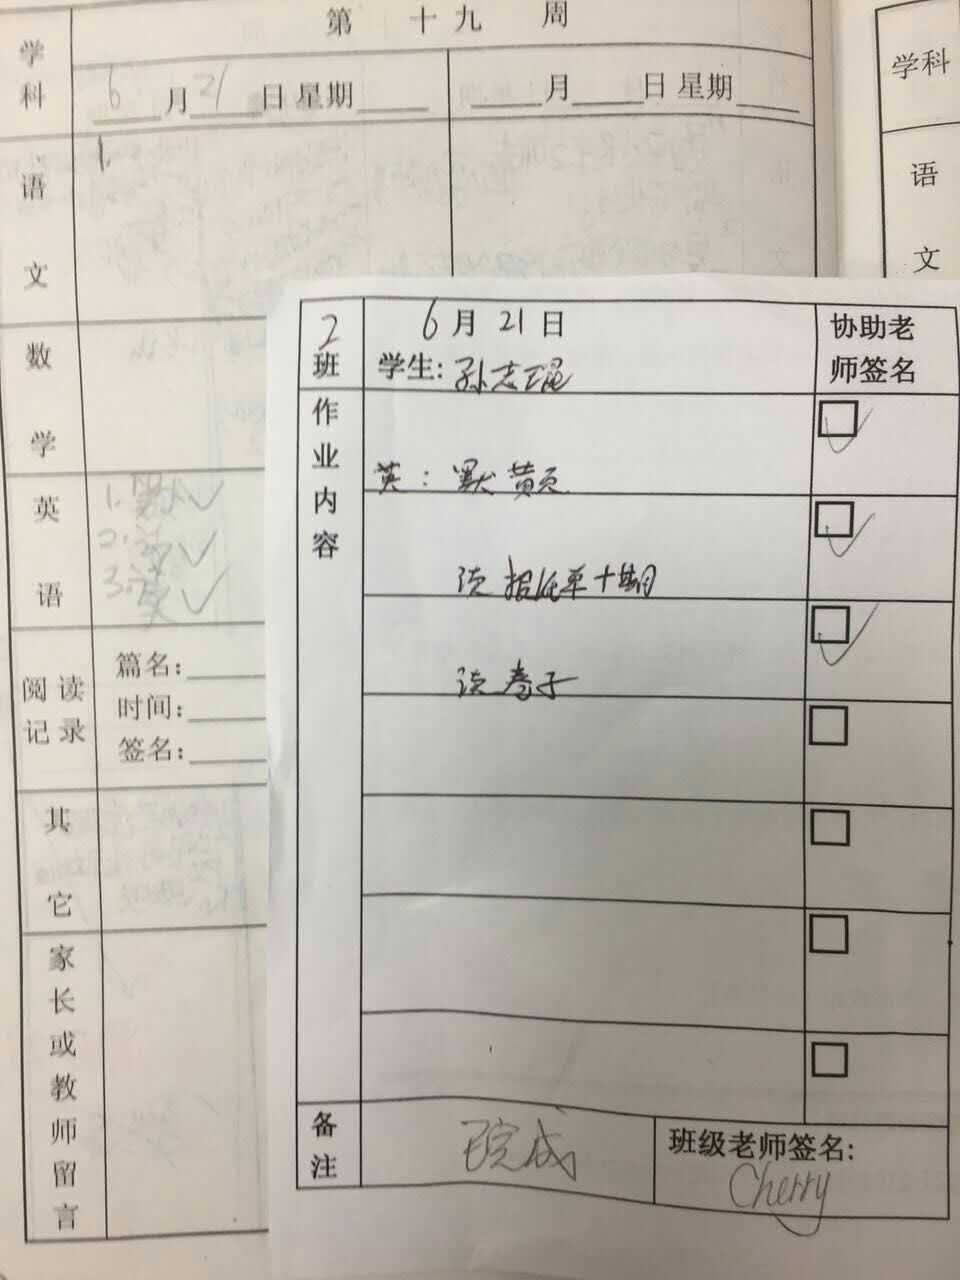 学科
第十九周
6月21日星期
月 日星期
学科
语文
1.
语文
数学
英语
1.默
2.
3.读
阅读记录
篇名:
时间:
签名:
其它
家长或教师留言
2班
6月21日
学生:孙志琨
协助老师签名
作业内容
英:默黄页
读报纸第十期
读卷子
备注
已完成
班级老师签名:
Cherry